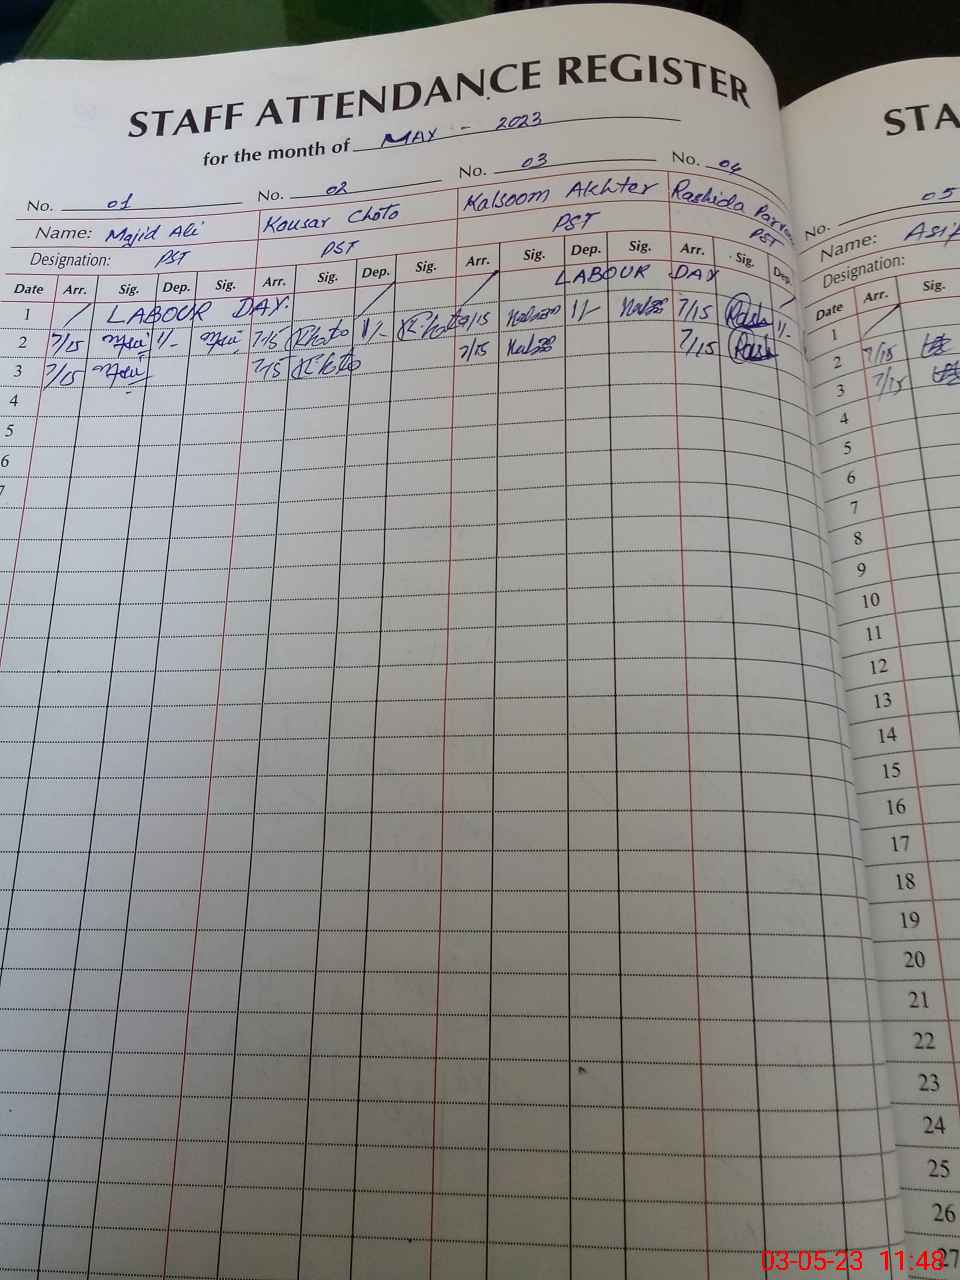 STAFF ATTENDANCE REGISTER
for the month of MAY - 2023
No. 01 No. 02 No. 03 No. 04
Name: Majid Ali Kousar Choto Kalsoom Akhter Rashida
Designation: PST PST PST PST
Date Arr. Sig. Dep. Sig. Arr. Sig. Dep. Sig. Arr. Sig. Dep. Sig. Arr. Sig. Dep.
1 LABOUR DAY. LABOUR DAY
2 7/15 1/- 7/15 1/- 7/15 1/- 7/15 1/-
3 7/15 7/15 7/15 7/15
4
5
6
7
STA
No. 05
Name:
Designation:
Date Arr. Sig.
1
2 7/15
3 7/15
4
5
6
7
8
9
10
11
12
13
14
15
16
17
18
19
20
21
22
23
24
25
26
27
03-05-23 11:48